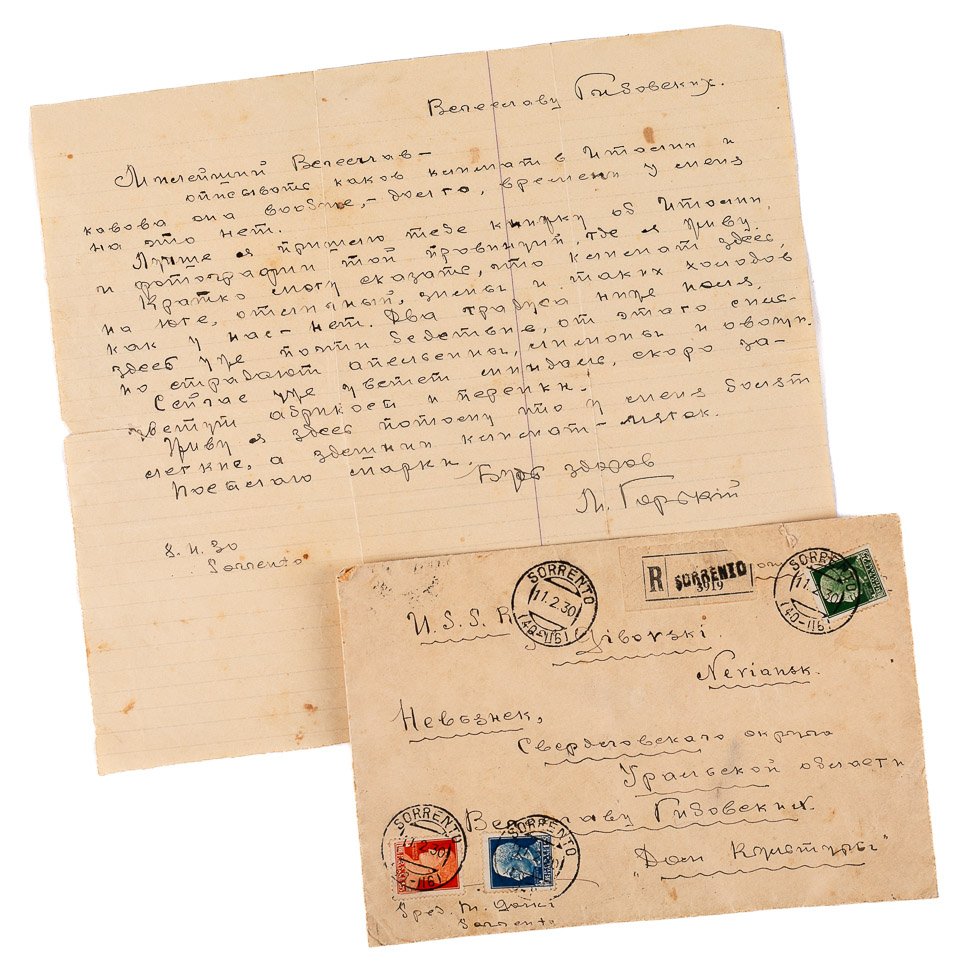 Вечеславу Гизовских.
Милейший Вечеслав –
описывать каков климат в Италии и
какова она вообще, – долго, времени у меня
на это нет.
Лучше я пришлю тебе книжку об Италии,
и фотографии той провинции, где я живу.
Кратко могу сказать, что климат здесь,
на юге, отличный, зимы и таких холодов
как у нас – нет. Два градуса ниже нуля,
здесь уже почти бедствие, от этого силь-
но страдают апельсины, лимоны и овощи.
Сейчас уже цветет миндаль, скоро за-
цветут абрикосы и персики.
Живу я здесь потому что у меня болят
легкие, а здешний климат – мягок.
Посылаю марки.
Будь здоров
М. Горькiй
8.II.30
Sorrento
R SORRENTO
3919
SORRENTO
11.2.30
(40-116)
SORRENTO
11.2.30
(40-116)
U.S.S.R
Gibovski.
Neviansk.
Невьянск,
Свердловского округа
Уральской области
Вечеславу Гизовских.
"Дом Культуры"
SORRENTO
11.2.30
SORRENTO
Sped. M. Gorki
Sorrento